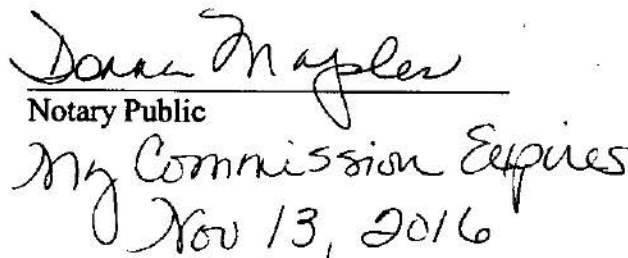 Donna Maples
Notary Public
My Commission Expires
Nov 13, 2016